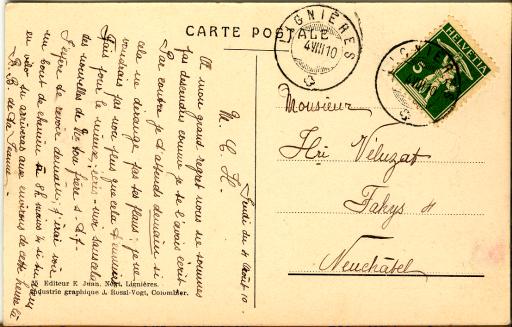 CARTE POSTALE
LIGNIÈRES
4 VIII 10
HELVETIA
5
LIGNIÈRES
Monsieur
Hri Véluzat
Fahys 4
Neuchâtel
Jeudi du 4 Août 10.
M. C. H.
A mon grand regret nous ne sommes
pas descendus comme je te l'avais écrit
Par contre je t'attends demain si
cela ne dérange pas tes plans; je ne
voudrais pas non plus que cela t'ennuie
Fais pour le mieux; écris-moi sans cela
des nouvelles de ton frère s. t. p.
J'espère te revoir demain, j'irai voir
un bout de chemin à 8h moins 1/4 si tu
en vélo tu arriveras aux environs de cette heure là
B. B. de ta Jeanne
Editeur E. Juan, Nogt, Lignières.
Industrie graphique J. Rossi-Vogt, Colombier.